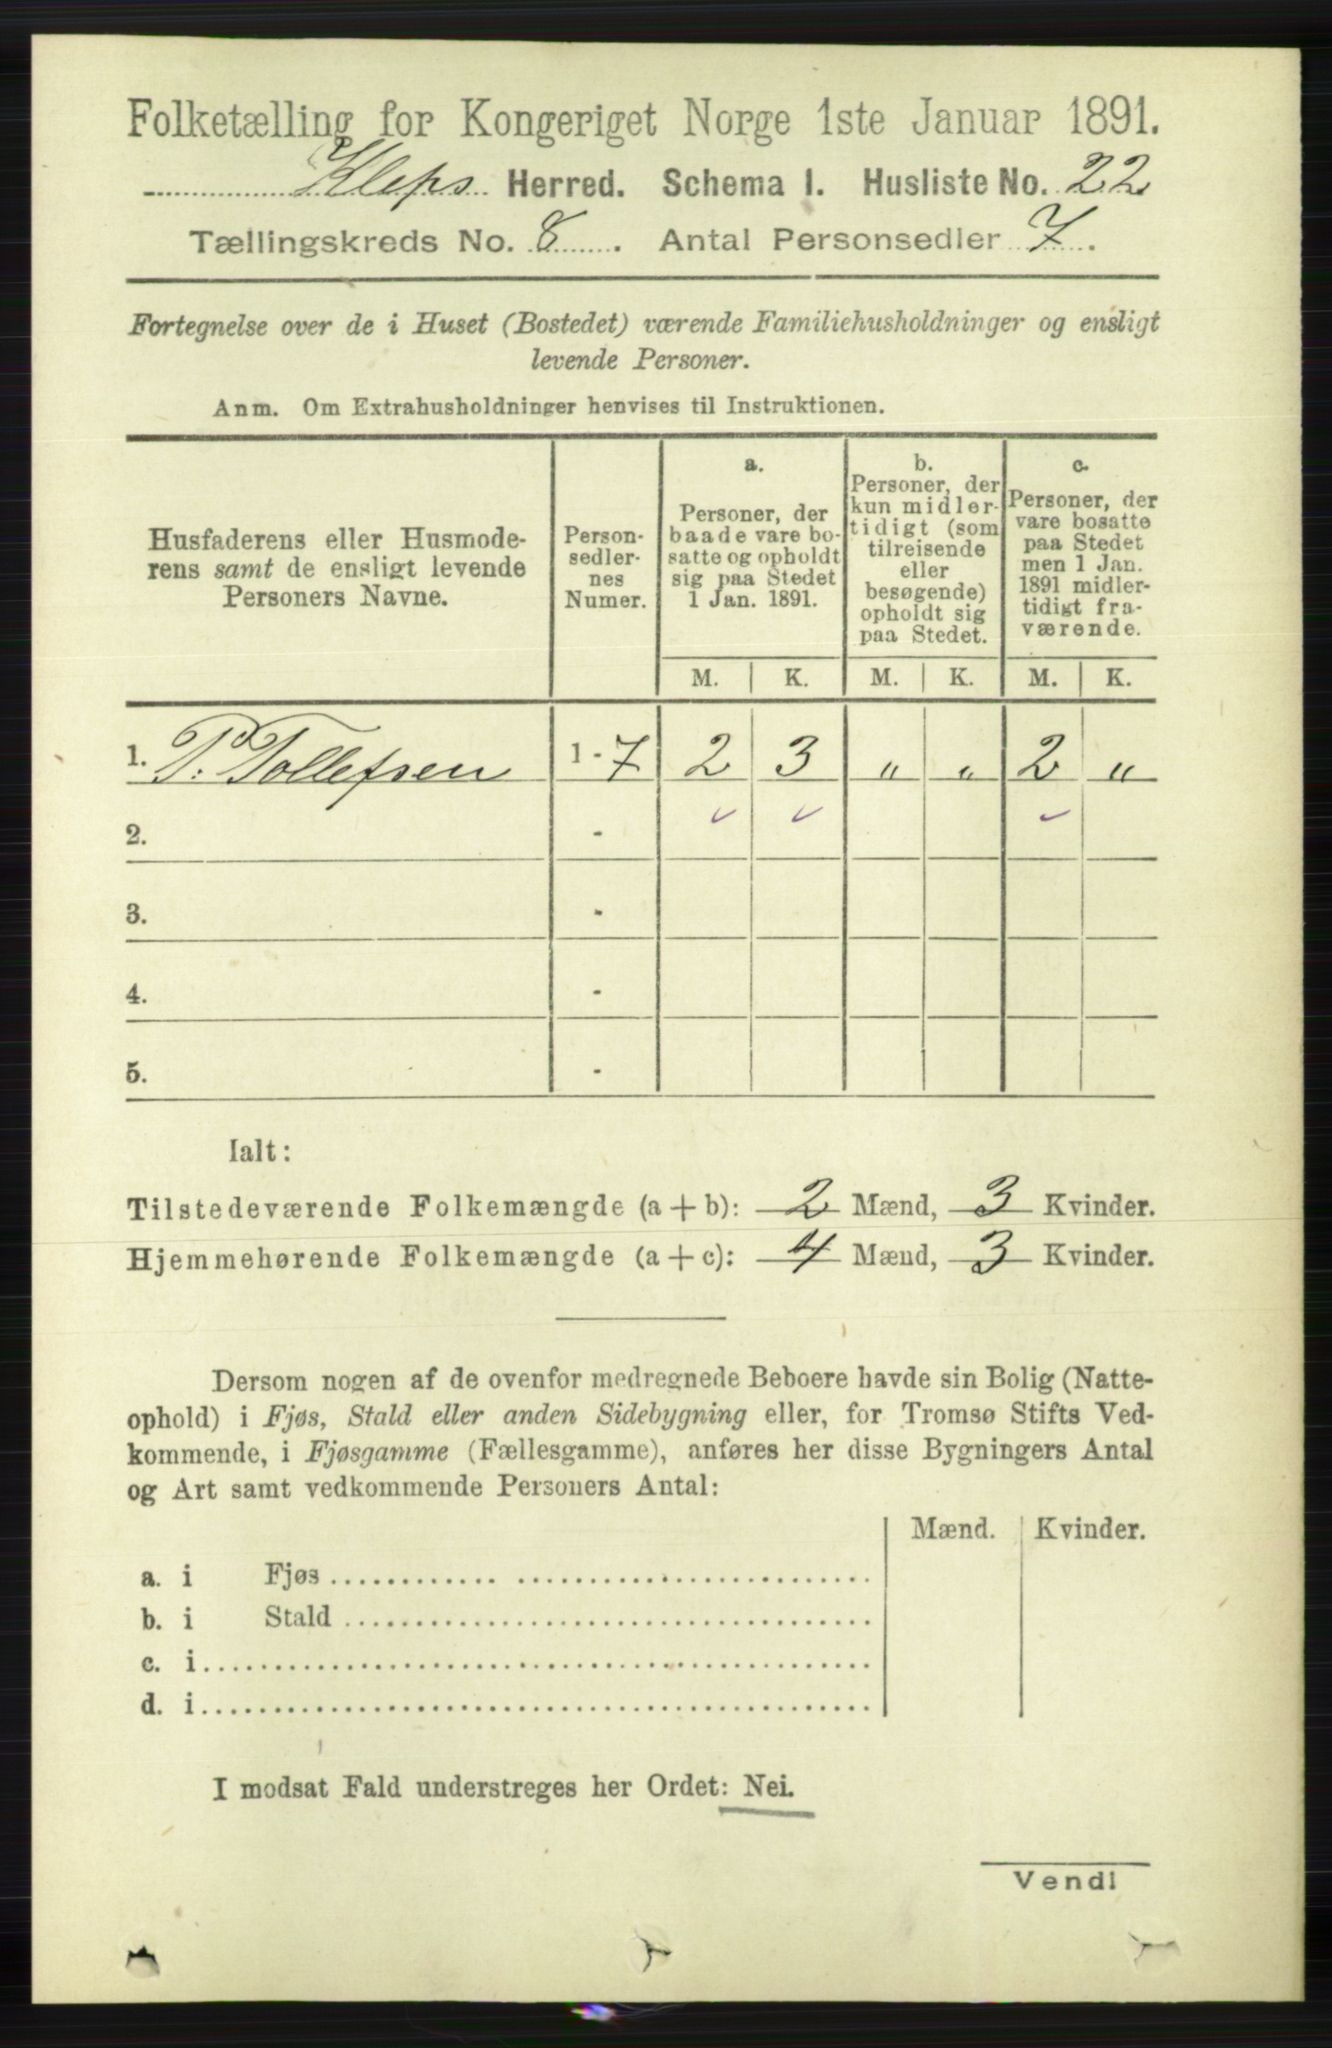 Folketælling for Kongeriget Norge 1ste Januar 1891.
Kleps Herred. Schema 1. Husliste No. 22
Tællingskreds No. 8. Antal Personsedler 7.
Fortegnelse over de i Huset (Bostedet) værende Familiehusholdninger og ensligt
levende Personer.
Anm. Om Extrahusholdninger henvises til Instruktionen.
Husfaderens eller Husmode-
rens samt de ensligt levende
Personers Navne.
Person-
sedler-
nes
Numer.
a.
Personer, der
baade vare bo-
satte og opholdt
sig paa Stedet
1 Jan. 1891.
b.
Personer, der
kun midler-
tidigt (som
tilreisende
eller
besøgende)
opholdt sig
paa Stedet.
c.
Personer, der
vare bosatte
paa Stedet
men 1 Jan.
1891 midler-
tidigt fra-
værende.
M. K. M. K. M. K.
1. P. Tollefsen 1 - 7 2 3 „ „ 2 „
2. -
3. -
4. -
5. -
Ialt:
Tilstedeværende Folkemængde (a + b): 2 Mænd, 3 Kvinder.
Hjemmehørende Folkemængde (a + c): 4 Mænd, 3 Kvinder.
Dersom nogen af de ovenfor medregnede Beboere havde sin Bolig (Natte-
ophold) i Fjøs, Stald eller anden Sidebygning eller, for Tromsø Stifts Ved-
kommende, i Fjøsgamme (Fællesgamme), anføres her disse Bygningers Antal
og Art samt vedkommende Personers Antal:
Mænd. Kvinder.
a. i Fjøs
b. i Stald
c. i
d. i
I modsat Fald understreges her Ordet: Nei.
Vend!